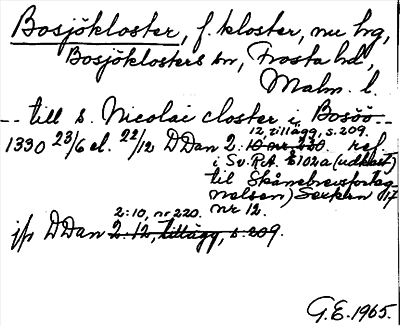 Bosjökloster, f. kloster, nu hg,
Bosjöklosters sn, Frosta hd,
Malm. l.
-- till s. Nicolai closter i Bosöö --
12, tillägg, s. 209.
1330 23/6 el. 22/12 DDan 2: 10 nr 220. ref.
i Sv. RA. E 102a (udkast)
til Skånebrevsforteg-
nelsen) Seksten 17
nr 12.
2:10, nr 220.
jfr DDan 2:12, tillägg, s. 209.
G.E. 1965.